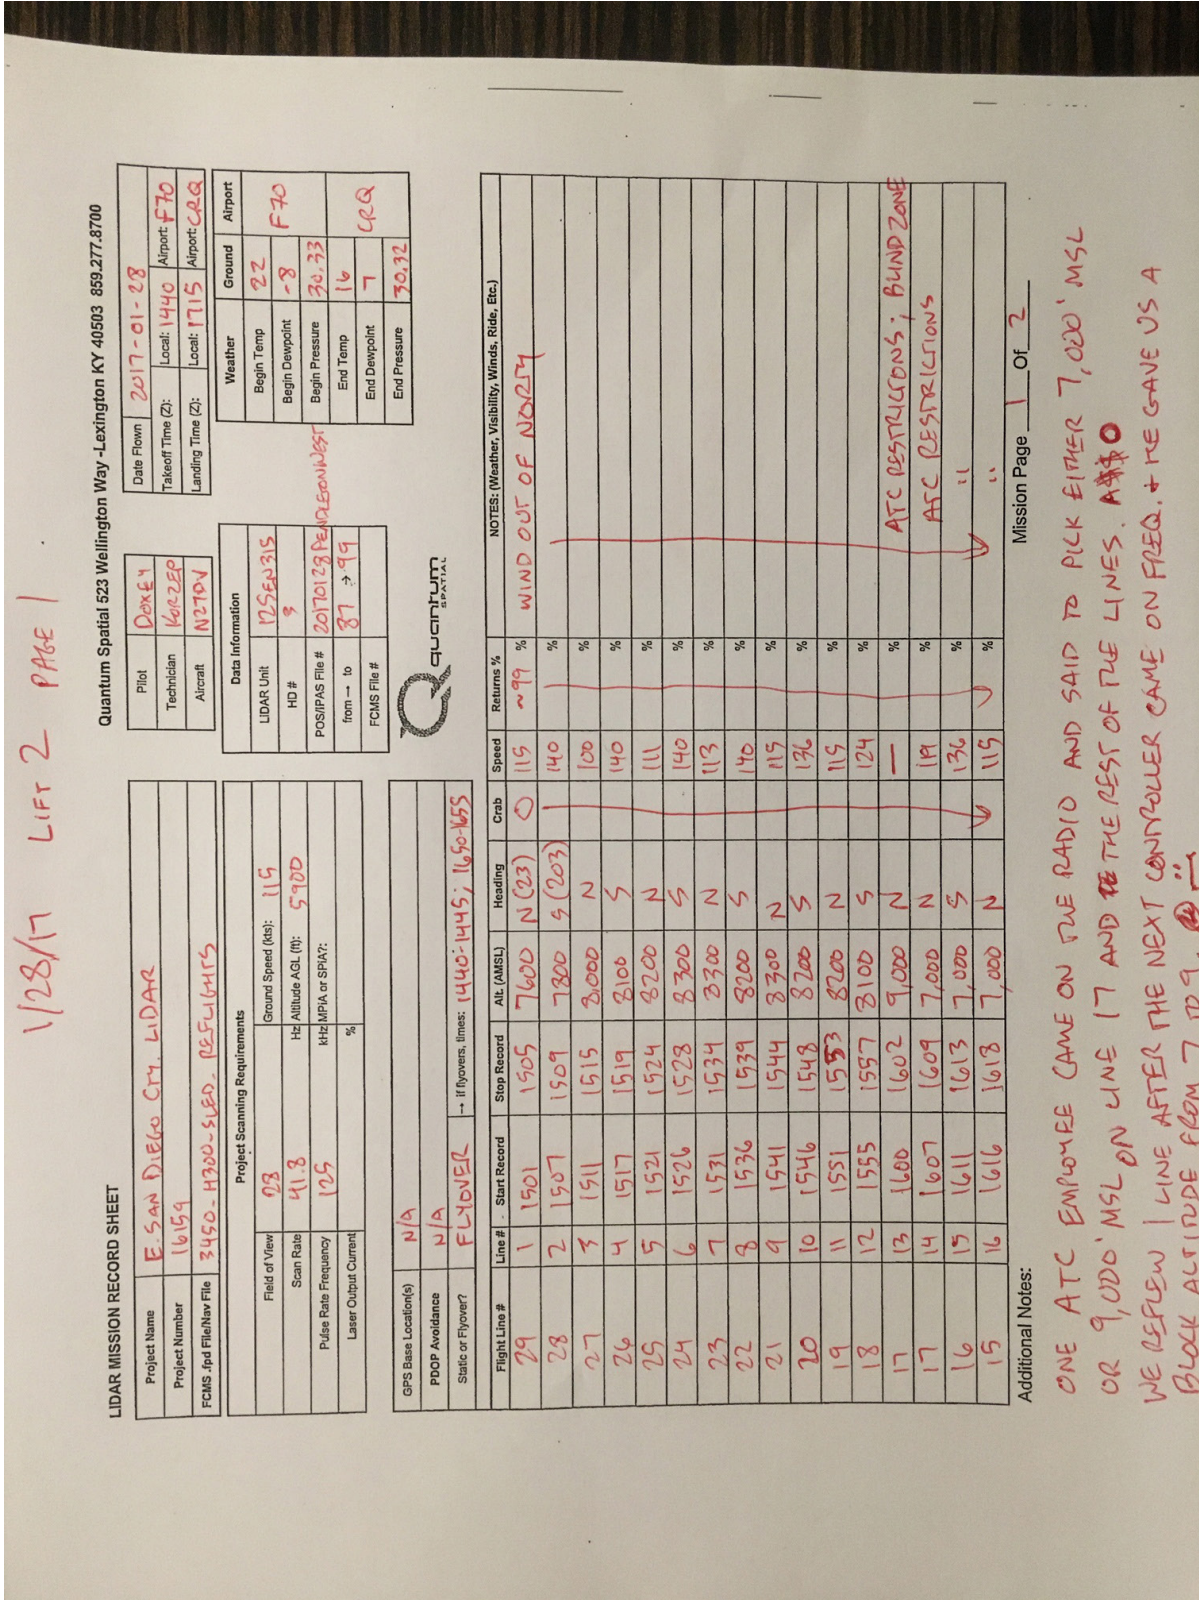 1/28/17 LIFT 2 PAGE 1
Quantum Spatial 523 Wellington Way -Lexington KY 40503 859.277.8700
LIDAR MISSION RECORD SHEET
Project Name E. SAN DIEGO CTY. LIDAR
Project Number 16159
FCMS .fpd File/Nav File 3450-H300-SLED_REFLIGHTS
Pilot DOXEY
Technician KORZEP
Aircraft N27DV
Date Flown 2017-01-28
Takeoff Time (Z): Local: 1440 Airport: F70
Landing Time (Z): Local: 1715 Airport: CRQ
Project Scanning Requirements
Field of View 28 Ground Speed (kts): 115
Scan Rate 41.8 Hz Altitude AGL (ft): 5900
Pulse Rate Frequency 125 kHz MPiA or SPiA?:
Laser Output Current %
Data Information
LIDAR Unit 12SEN315
HD # 3
POS/IPAS File # 20170128PENDLETONWEST
from → to 87 → 99
FCMS File #
Weather Ground Airport
Begin Temp 22 F70
Begin Dewpoint -8
Begin Pressure 30.33
End Temp 16 CRQ
End Dewpoint 7
End Pressure 30.32
GPS Base Location(s) N/A
PDOP Avoidance N/A
Static or Flyover? FLYOVER → if flyovers, times: 1440-1445; 1650-1655
quantum
SPATIAL
Flight Line # Line # Start Record Stop Record Alt. (AMSL) Heading Crab Speed Returns % NOTES: (Weather, Visibility, Winds, Ride, Etc.)
29 1 1501 1505 7600 N (23) 0 115 ~99 % WIND OUT OF NORTH
28 2 1507 1509 7800 S (203) 140 %
27 3 1511 1515 8,000 N 100 %
26 4 1517 1519 8100 S 140 %
25 5 1521 1524 8200 N 111 %
24 6 1526 1528 8300 S 140 %
23 7 1531 1534 8300 N 113 %
22 8 1536 1539 8200 S 140 %
21 9 1541 1544 8300 N 115 %
20 10 1546 1548 8200 S 136 %
19 11 1551 1553 8200 N 115 %
18 12 1555 1557 8100 S 124 %
17 13 1600 1602 9,000 N — % ATC RESTRICTIONS; BLIND ZONE
17 14 1607 1609 7,000 N 119 % ATC RESTRICTIONS
16 15 1611 1613 7,000 S 136 % "
15 16 1616 1618 7,000 N 115 % "
Additional Notes:
Mission Page 1 Of 2
ONE ATC EMPLOYEE CAME ON THE RADIO AND SAID TO PICK EITHER 7,000' MSL
OR 9,000' MSL ON LINE 17 AND THE REST OF THE LINES.
WE REFLEW 1 LINE AFTER THE NEXT CONTROLLER CAME ON FREQ. + HE GAVE US A
BLOCK ALTITUDE FROM 7 TO 9.